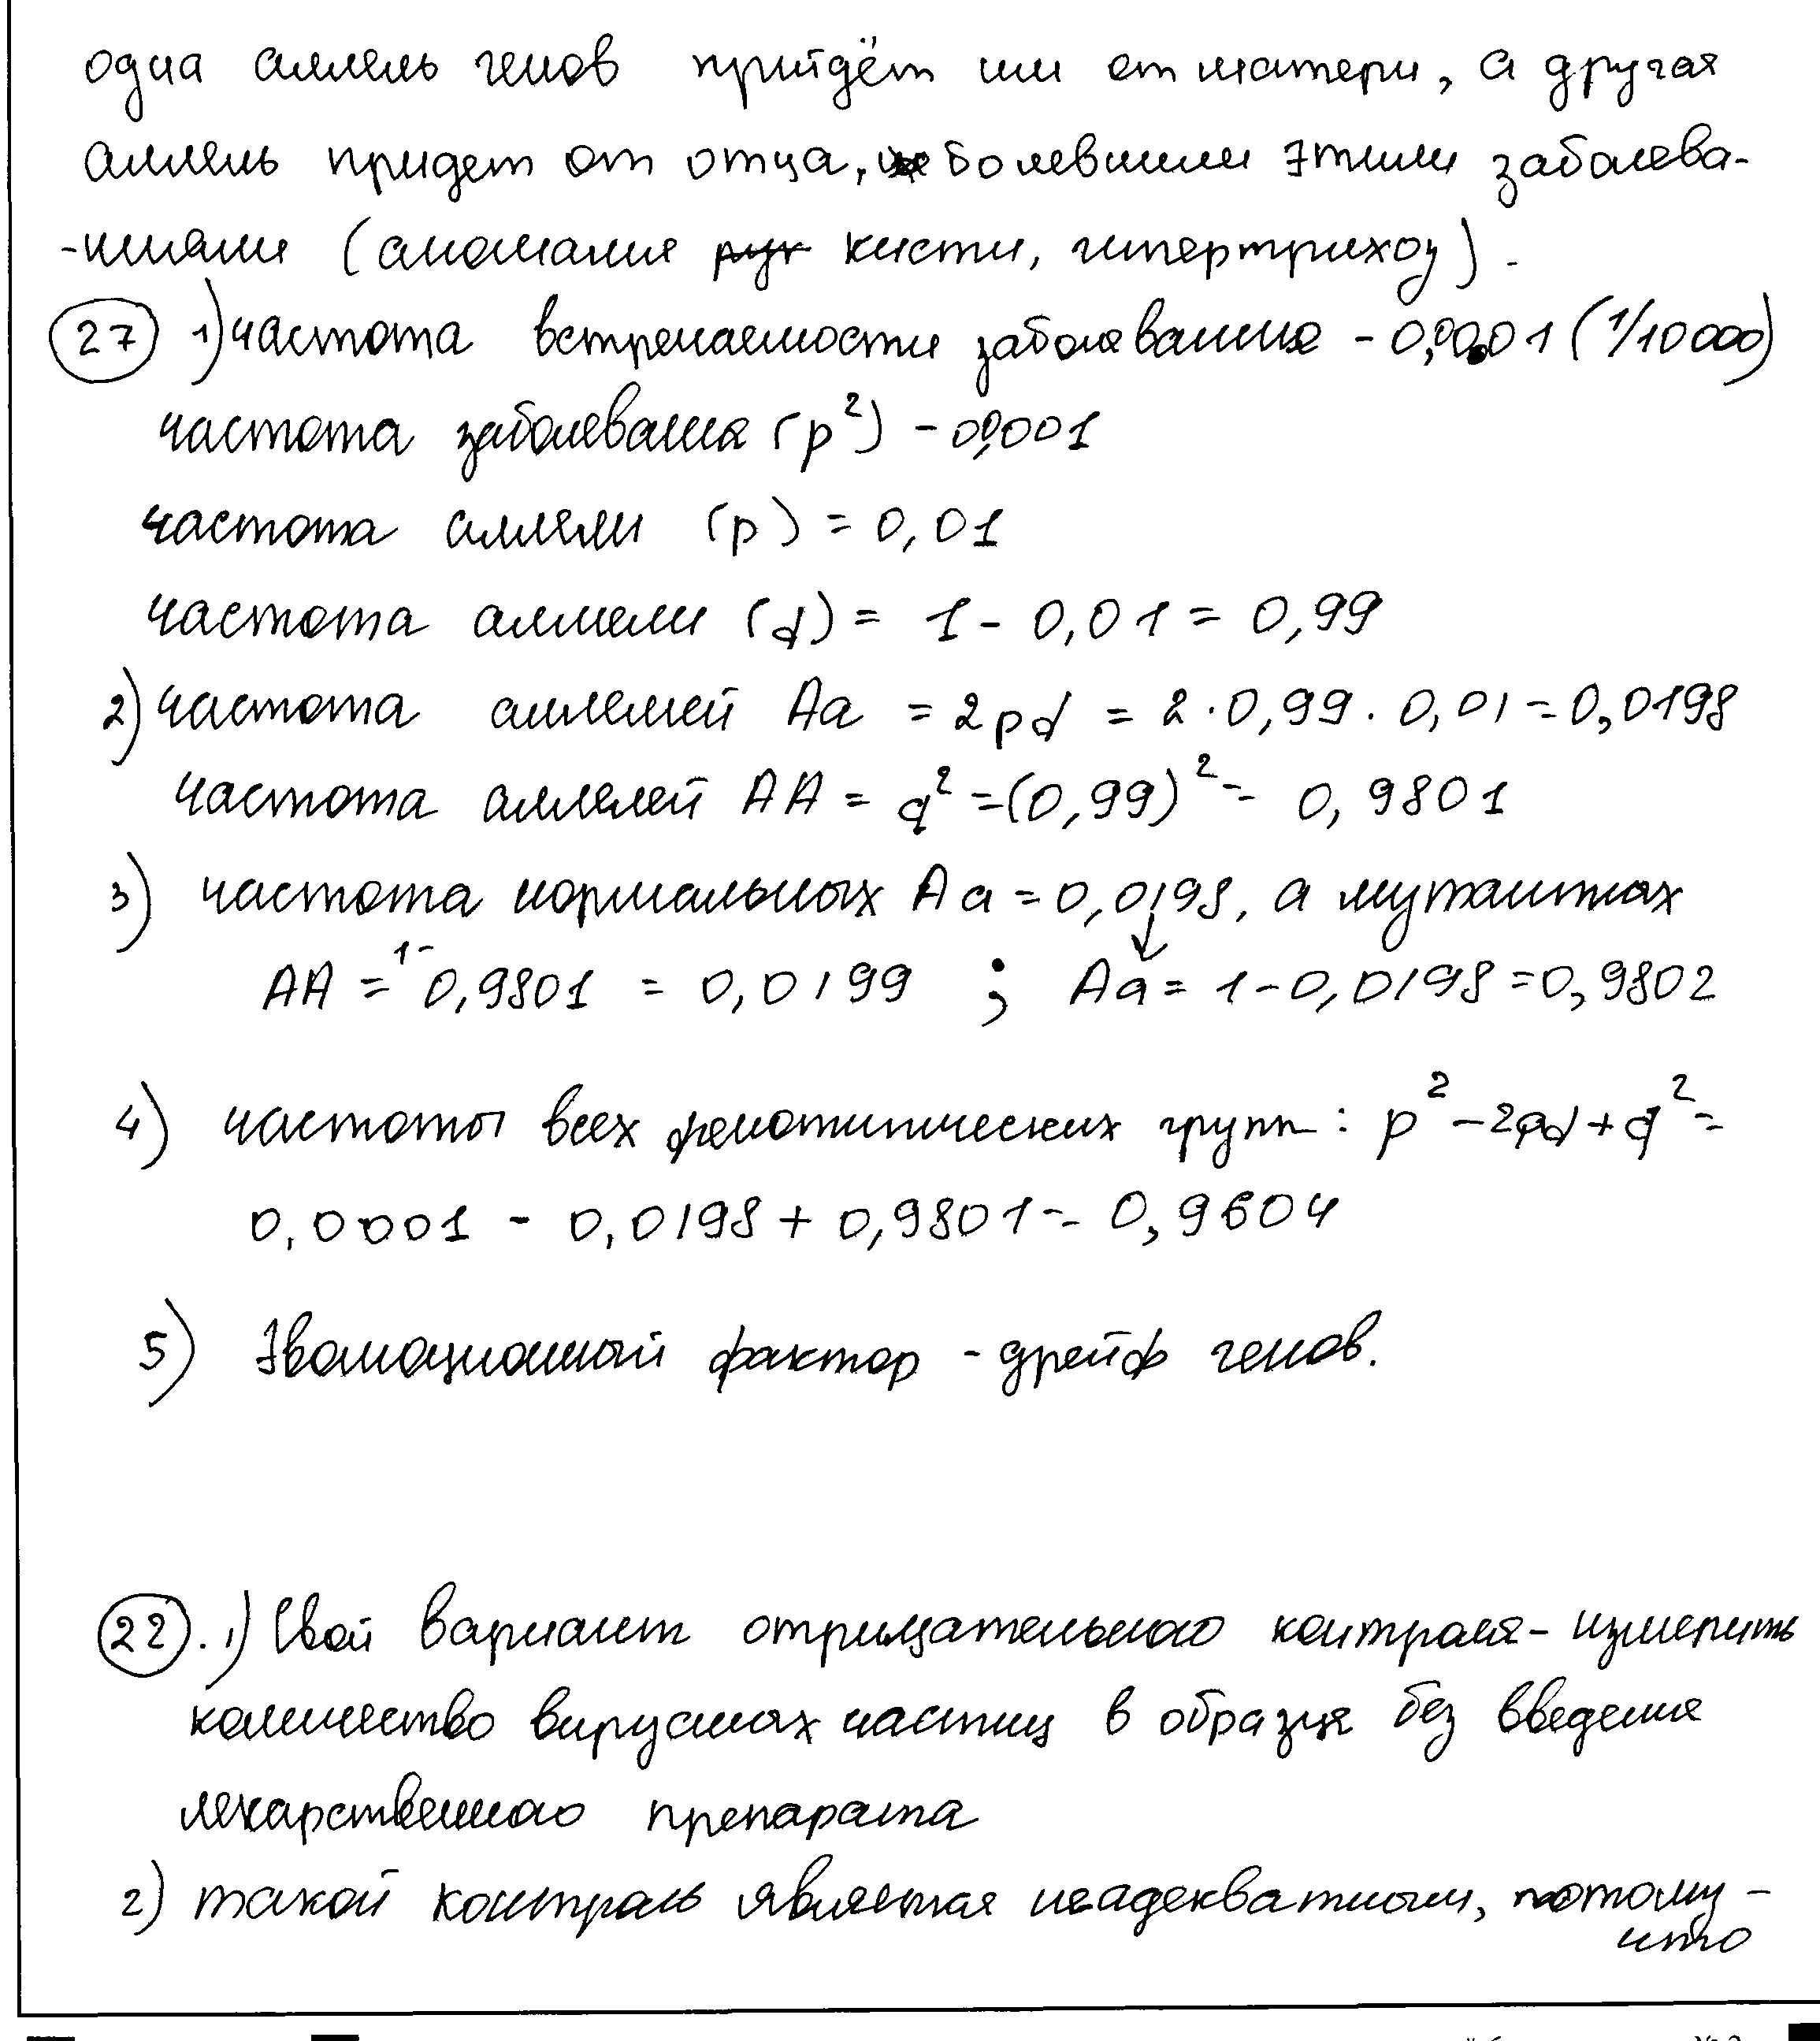 одна аллель генов прийдёт им от матери, а другая
аллель придет от отца, не болевшими этими заболева-
-ниями (аномалия рук кисти, гипертрихоз).
27 1) частота встречаемости заболевания - 0,0001 (1/10000)
частота заболевания (p²) - 0,0001
частота аллели (p) = 0,01
частота аллели (q) = 1 - 0,01 = 0,99
2) частота аллелей Aa = 2pq = 2·0,99·0,01 = 0,0198
частота аллелей AA = q² = (0,99)² = 0,9801
3) частота нормальных Aa = 0,0198, а мутантных
AA = 1 - 0,9801 = 0,0199 ; Aa = 1 - 0,0198 = 0,9802
4) частоты всех фенотипических групп: p² - 2pq + q² =
0,0001 - 0,0198 + 0,9801 = 0,9604
5) Эволюционный фактор - дрейф генов.
22. 1) Свой вариант отрицательного контроля - измерить
количество вирусных частиц в образце без введения
лекарственного препарата
2) такой контроль является неадекватным, потому -
что